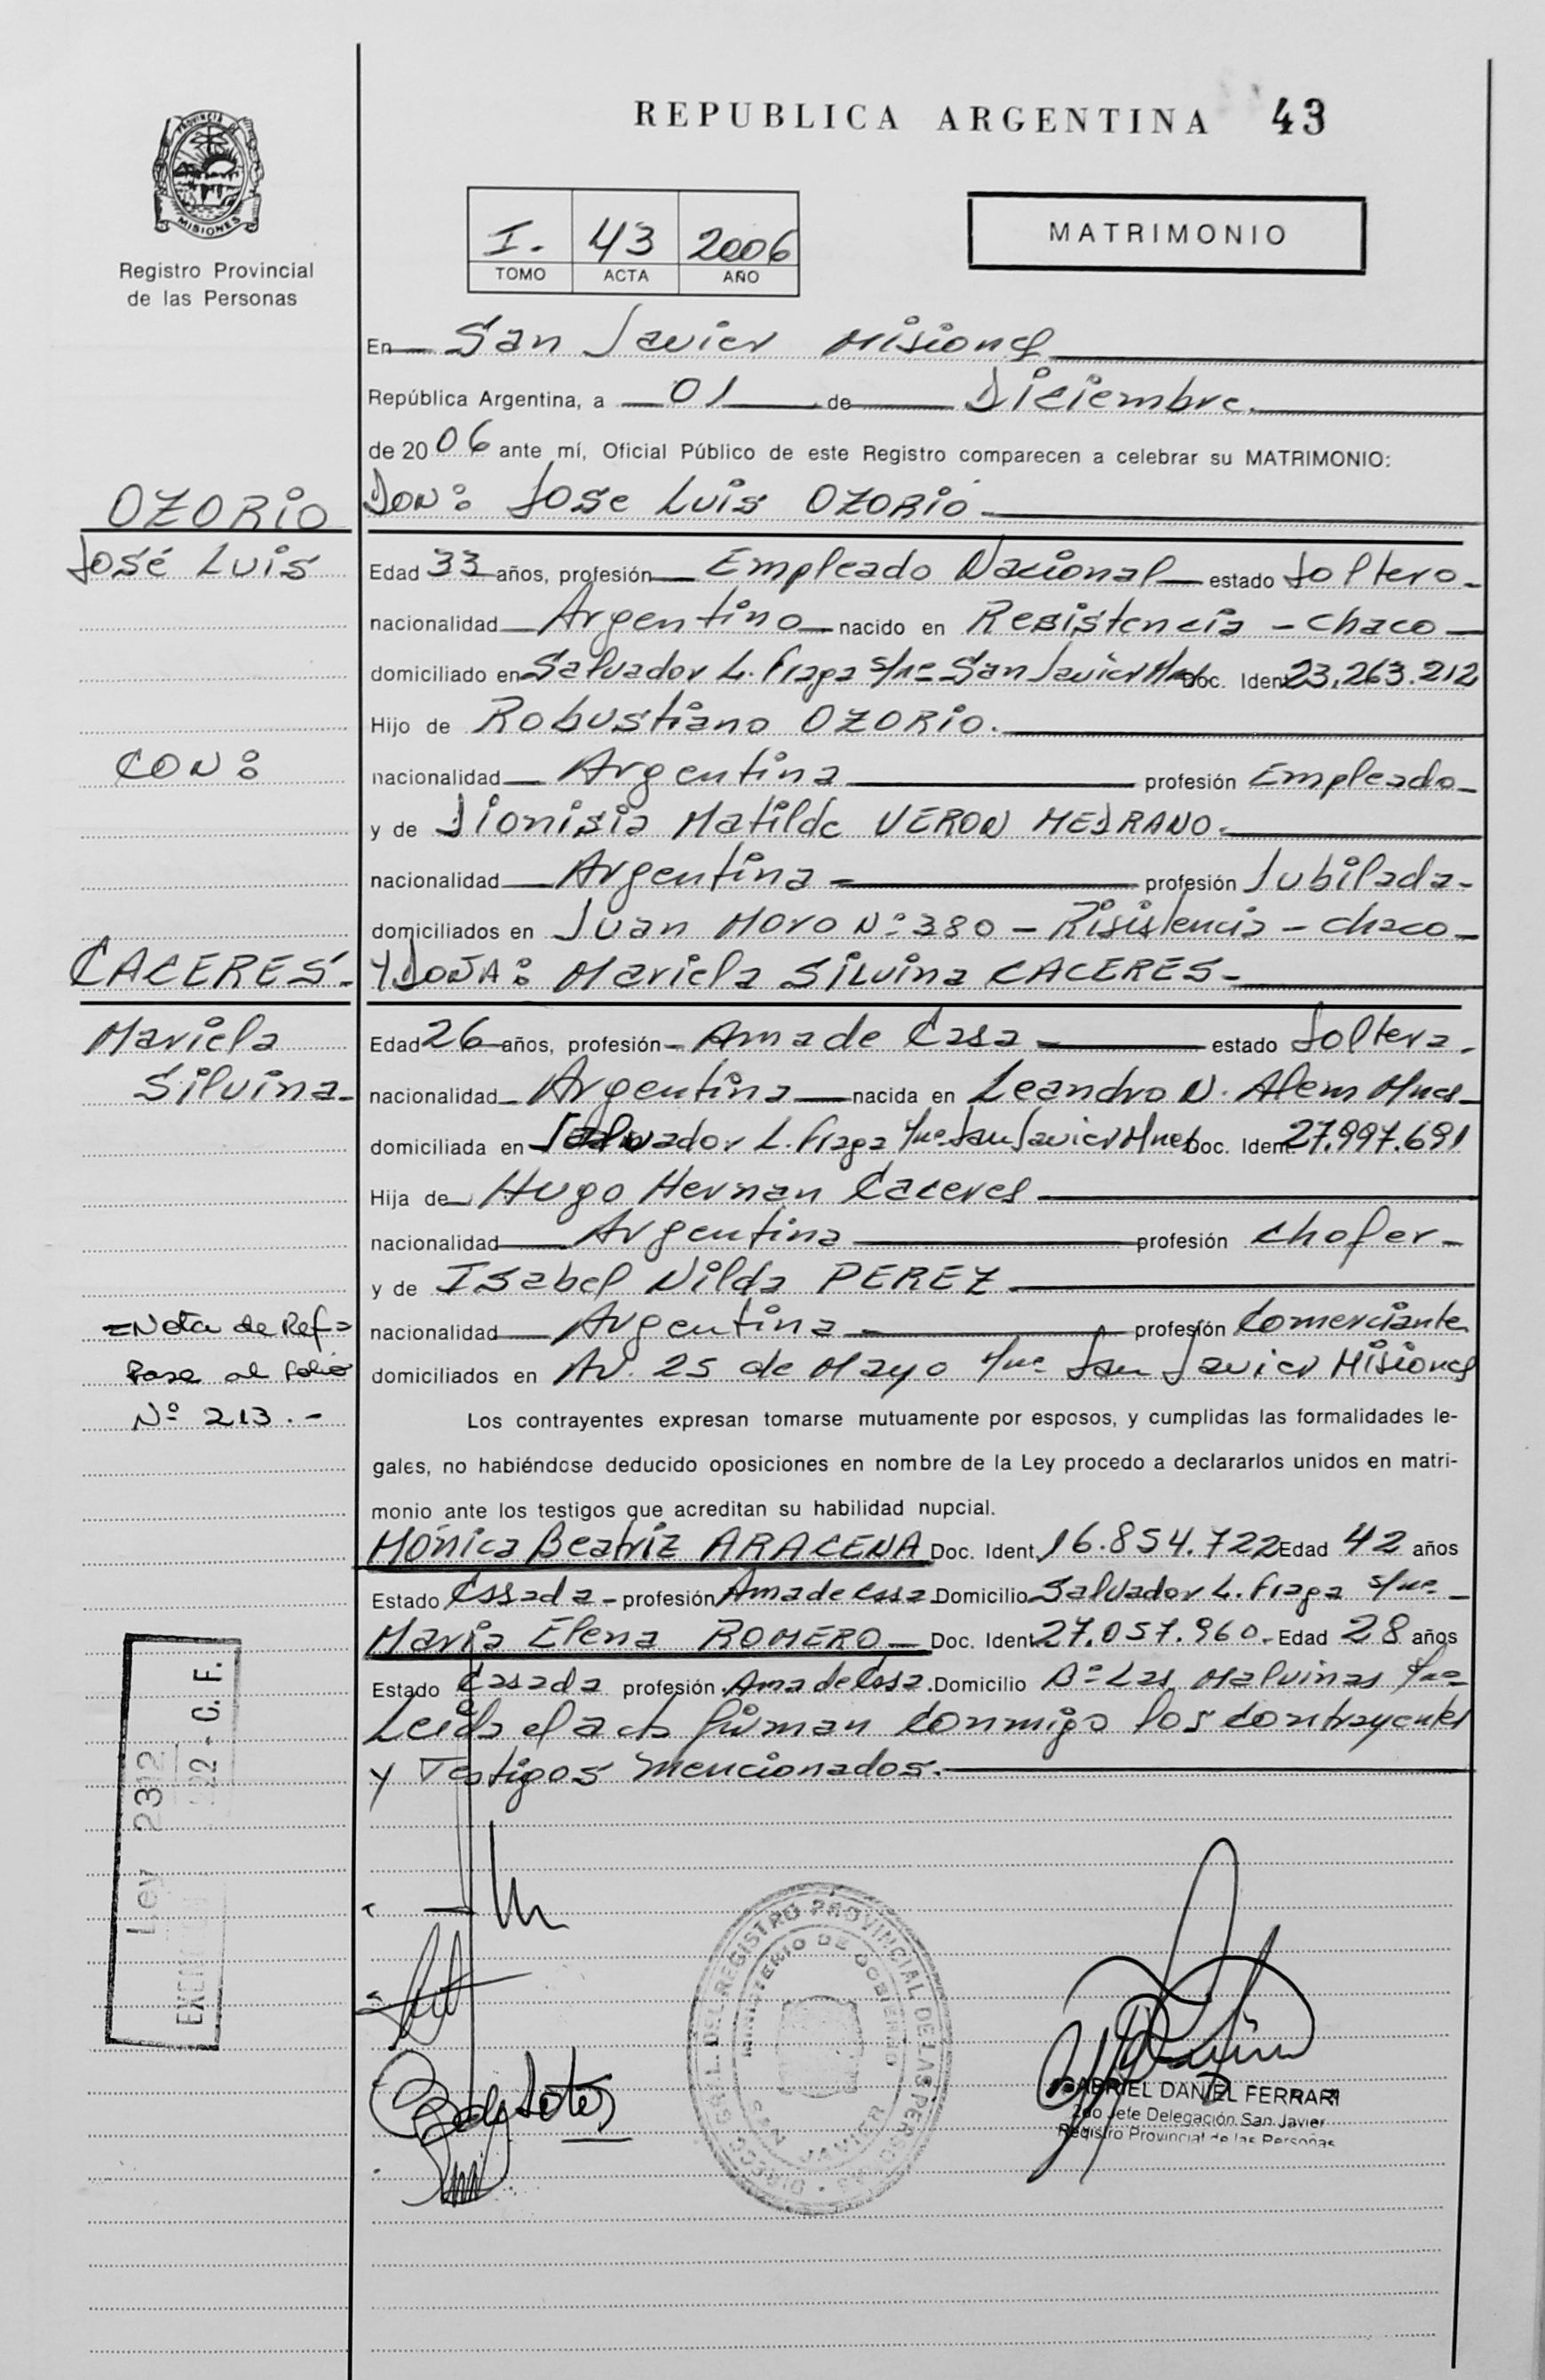 REPUBLICA ARGENTINA 43
PROVINCIA DE
MISIONES
Registro Provincial
de las Personas
I. 43 2006
TOMO ACTA AÑO
MATRIMONIO
En San Javier Misiones
República Argentina, a 01 de Diciembre.
de 2006 ante mí, Oficial Público de este Registro comparecen a celebrar su MATRIMONIO:
OZORIO
DON: Jose Luis OZORIO
José Luis
Edad 33 años, profesión Empleado Nacional estado Soltero
nacionalidad Argentino nacido en Resistencia - Chaco
domiciliado en Salvador L. Fraga s/nº San Javier Mnes Doc. Ident 23.263.212
Hijo de Robustiano OZORIO.
CON:
nacionalidad Argentina profesión Empleado
y de Dionisia Matilde VERON MEDRANO.
nacionalidad Argentina profesión Jubilada-
domiciliados en Juan Moro Nº 380 - Risistencia - Chaco
CACERES.
Y DOÑA: Mariela Silvina CACERES-
Mariela
Silvina
Edad 26 años, profesión Ama de Casa estado Soltera.
nacionalidad Argentina nacida en Leandro N. Alem Mnes
domiciliada en Salvador L. Fraga s/nº San Javier Mnes Doc. Ident 27.997.691
Hija de Hugo Hernan Caceres
nacionalidad Argentina profesión Chofer
y de Isabel Nilda PEREZ
=Nota de Ref=
Pase al Folio
Nº 213.-
nacionalidad Argentina profesión Comerciante
domiciliados en Av. 25 de Mayo s/nº San Javier Misiones
Los contrayentes expresan tomarse mutuamente por esposos, y cumplidas las formalidades le-
gales, no habiéndose deducido oposiciones en nombre de la Ley procedo a declararlos unidos en matri-
monio ante los testigos que acreditan su habilidad nupcial.
Mónica Beatriz ARACENA Doc. Ident. 16.854.722 Edad 42 años
Estado Casada - profesión Ama de casa Domicilio Salvador L. Fraga s/nº
Maria Elena ROMERO Doc. Ident. 27.057.960 Edad 28 años
Estado Casada profesión Ama de Casa. Domicilio Bº Las Malvinas s/nº
Leida el acta firman conmigo los contrayentes
y Testigos mencionados.
Ley 2312
22 - C. F.
DIRECC. GRAL. DEL REGISTRO PROVINCIAL DE LAS PERSONAS
MINISTERIO DE GOBIERNO
SAN JAVIER
GABRIEL DANIEL FERRARI
2do Jefe Delegación San Javier
Registro Provincial de las Personas